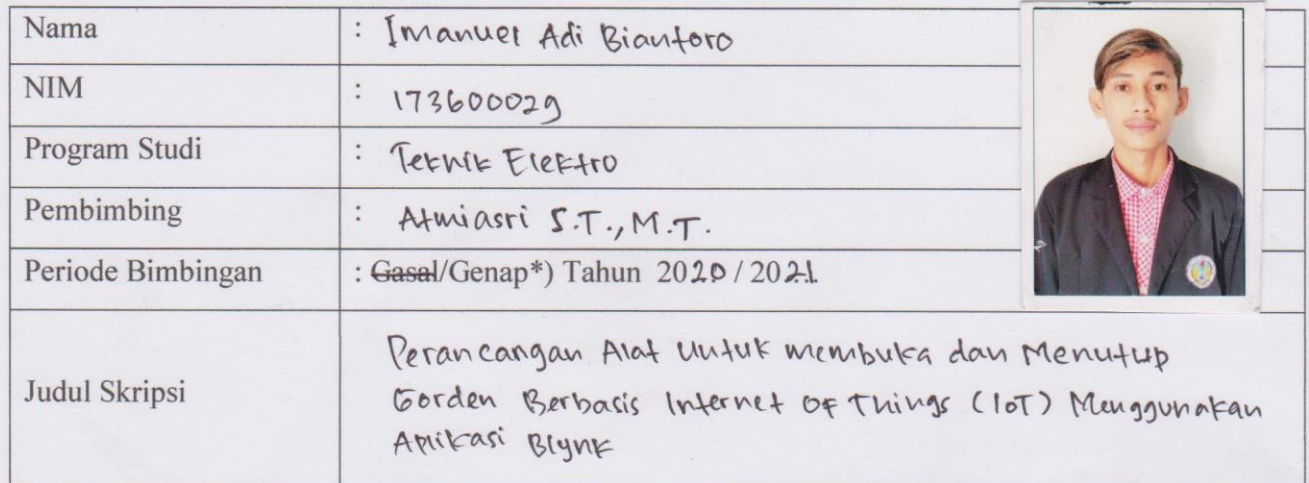 Nama : Imanuel Adi Biantoro
NIM : 173600029
Program Studi : Teknik Elektro
Pembimbing : Atmiasri S.T., M.T.
Periode Bimbingan : Gasal/Genap*) Tahun 2020 / 2021
Judul Skripsi : Perancangan Alat Untuk membuka dan Menutup
Gorden Berbasis Internet Of Things (IoT) Menggunakan
Aplikasi Blynk